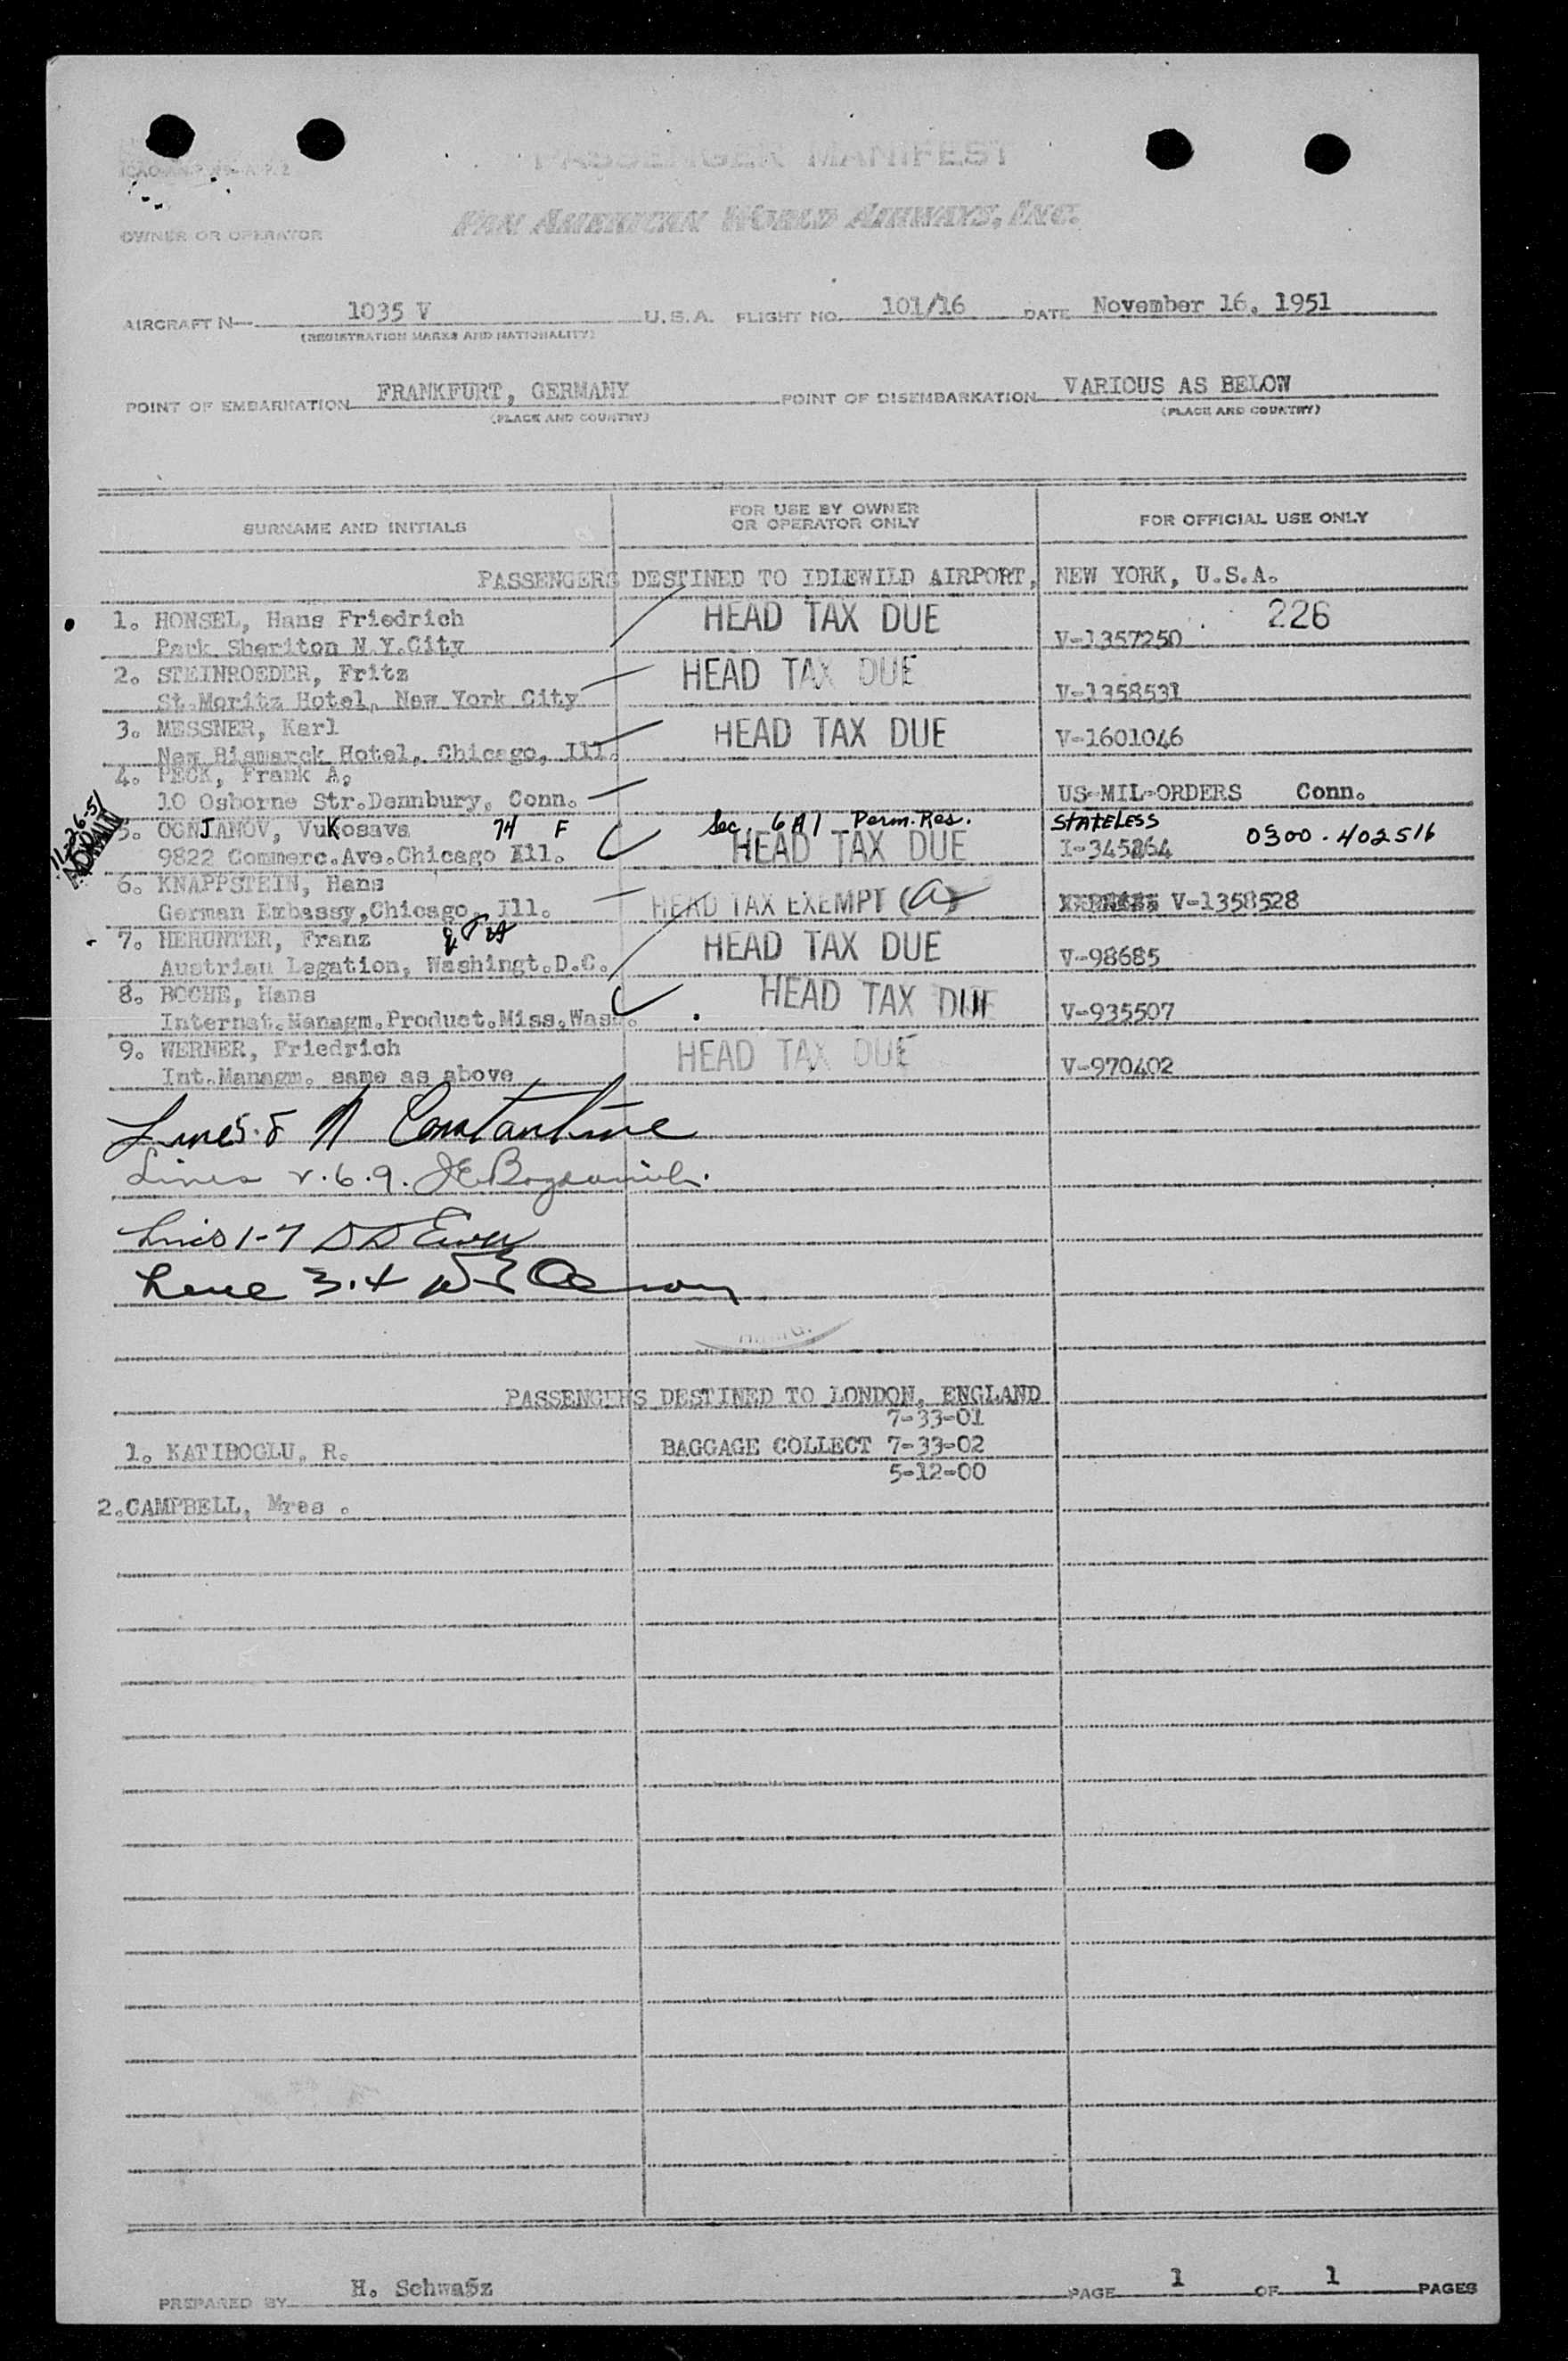 PASSENGER MANIFEST
OWNER OR OPERATOR
PAN AMERICAN WORLD AIRWAYS, INC.
AIRCRAFT N— 1035 V U.S.A. FLIGHT NO. 101/16 DATE November 16, 1951
(REGISTRATION MARKS AND NATIONALITY)
POINT OF EMBARKATION FRANKFURT, GERMANY POINT OF DISEMBARKATION VARIOUS AS BELOW
(PLACE AND COUNTRY) (PLACE AND COUNTRY)
SURNAME AND INITIALS FOR USE BY OWNER OR OPERATOR ONLY FOR OFFICIAL USE ONLY
PASSENGERS DESTINED TO IDLEWILD AIRPORT, NEW YORK, U.S.A.
1. HONSEL, Hans Friedrich HEAD TAX DUE 226
Park Sheriton N.Y.City V-1357250
2. STEINROEDER, Fritz HEAD TAX DUE
St.Moritz Hotel, New York City V-1358531
3. MESSNER, Karl HEAD TAX DUE V-1601046
New Bismarck Hotel, Chicago, Ill.
4. PECK, Frank A,
10 Osborne Str.Dannbury, Conn. US-MIL-ORDERS Conn.
11-26-51
5. OGNJANOV, Vukosava 74 F Sec. 6A1 Perm. Res. STATELESS
9822 Commerc.Ave.Chicago Ill. HEAD TAX DUE I-345264 0300-402516
6. KNAPPSTEIN, Hans
German Embassy,Chicago, Ill. HEAD TAX EXEMPT (a) V-1358528
7. HERUNTER, Franz HEAD TAX DUE
Austrian Legation, Washingt.D.C. V-98685
8. BOCHE, Hans HEAD TAX DUE
Internat.Managm.Product.Miss.Wash. V-935507
9. WERNER, Friedrich HEAD TAX DUE
Int.Managm. same as above V-970402
Lines 5.8 N Constantine
Lines 2.6.9.
Lines 1-7
Line 3.4
PASSENGERS DESTINED TO LONDON, ENGLAND
7-33-01
1. KATIBOGLU, R. BAGGAGE COLLECT 7-33-02
5-12-00
2.CAMPBELL, Mres .
PREPARED BY H. Schwarz PAGE 1 OF 1 PAGES